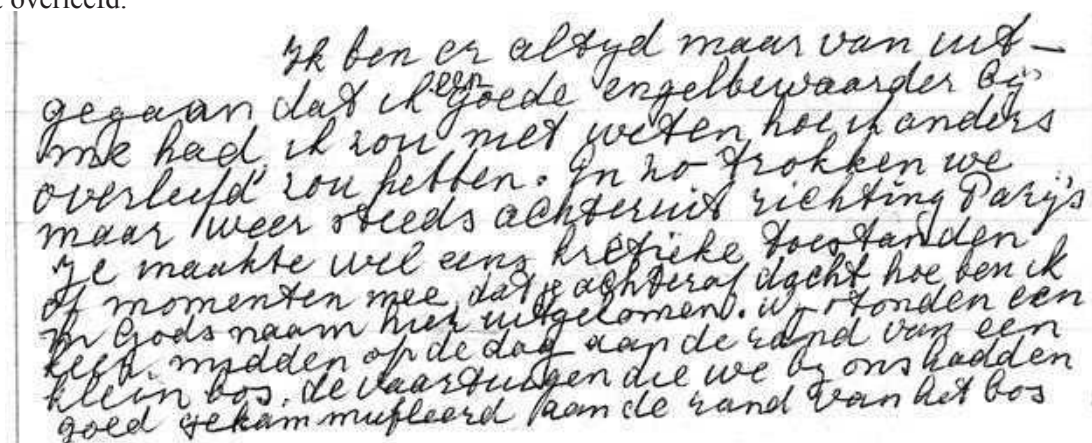 overleefd.
Ik ben er altyd maar van uit-
gegaan dat ik een goede engelbewaarder bij
me had, ik zou niet weten hoe ik anders
overleefd zou hebben. En zo trokken we
maar weer steeds achteruit richting Parijs
Je maakte wel eens kretieke toestanden
of momenten mee, dat je achteraf dacht hoe ben ik
in Gods naam hier uitgekomen. Wy stonden een
keer midden op de dag aan de rand van een
klein bos, de vaartuigen die we by ons hadden
goed gekammufleerd aan de rand van het bos